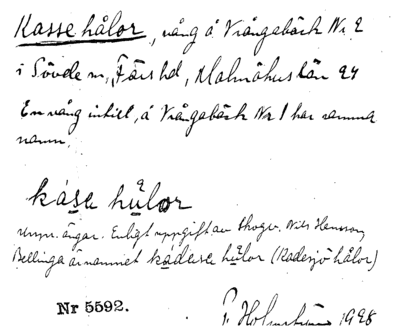 Kasse hålor, vång å Vrångabäck Nr 2
i Sövde sn, Färs hd, Malmöhus län 24
En vång intill, å Vrångabäck Nr 1 har samma
namn.
kåse hulor
urspr. ängar. Enligt uppgift av Skogv. Nils Hansson,
Bellinga är namnet kadese hulor (Kadesjö hålor)
Nr 5592.
1928